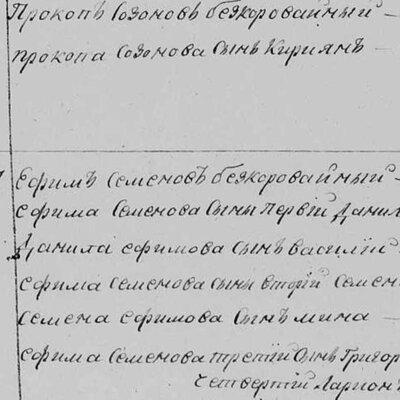 Прокопъ Созоновъ безкоровайный -
прокопа Созонова Сынъ Кириянъ -
Ефимъ Семеновъ безкоровайный -
ефима Семенова Сынъ первій Данил
Данила ефимова Сынъ василій
ефима Семенова Сынъ вторій Семен
Семена ефимова Сынъ мина -
ефима Семенова третій Сынъ Григор
Четвертій Ларионъ